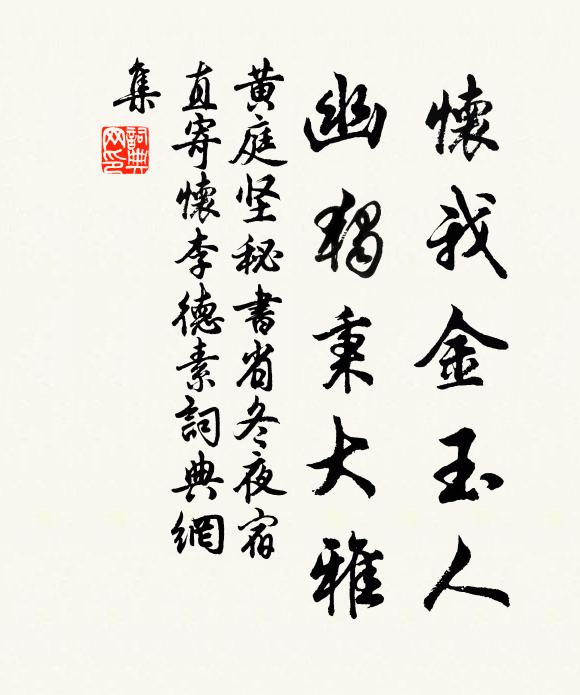 懷我金玉人
幽獨秉大雅
黄庭坚秘書省冬夜宿
直寄懷李德素詞典網
集
詞典
网印